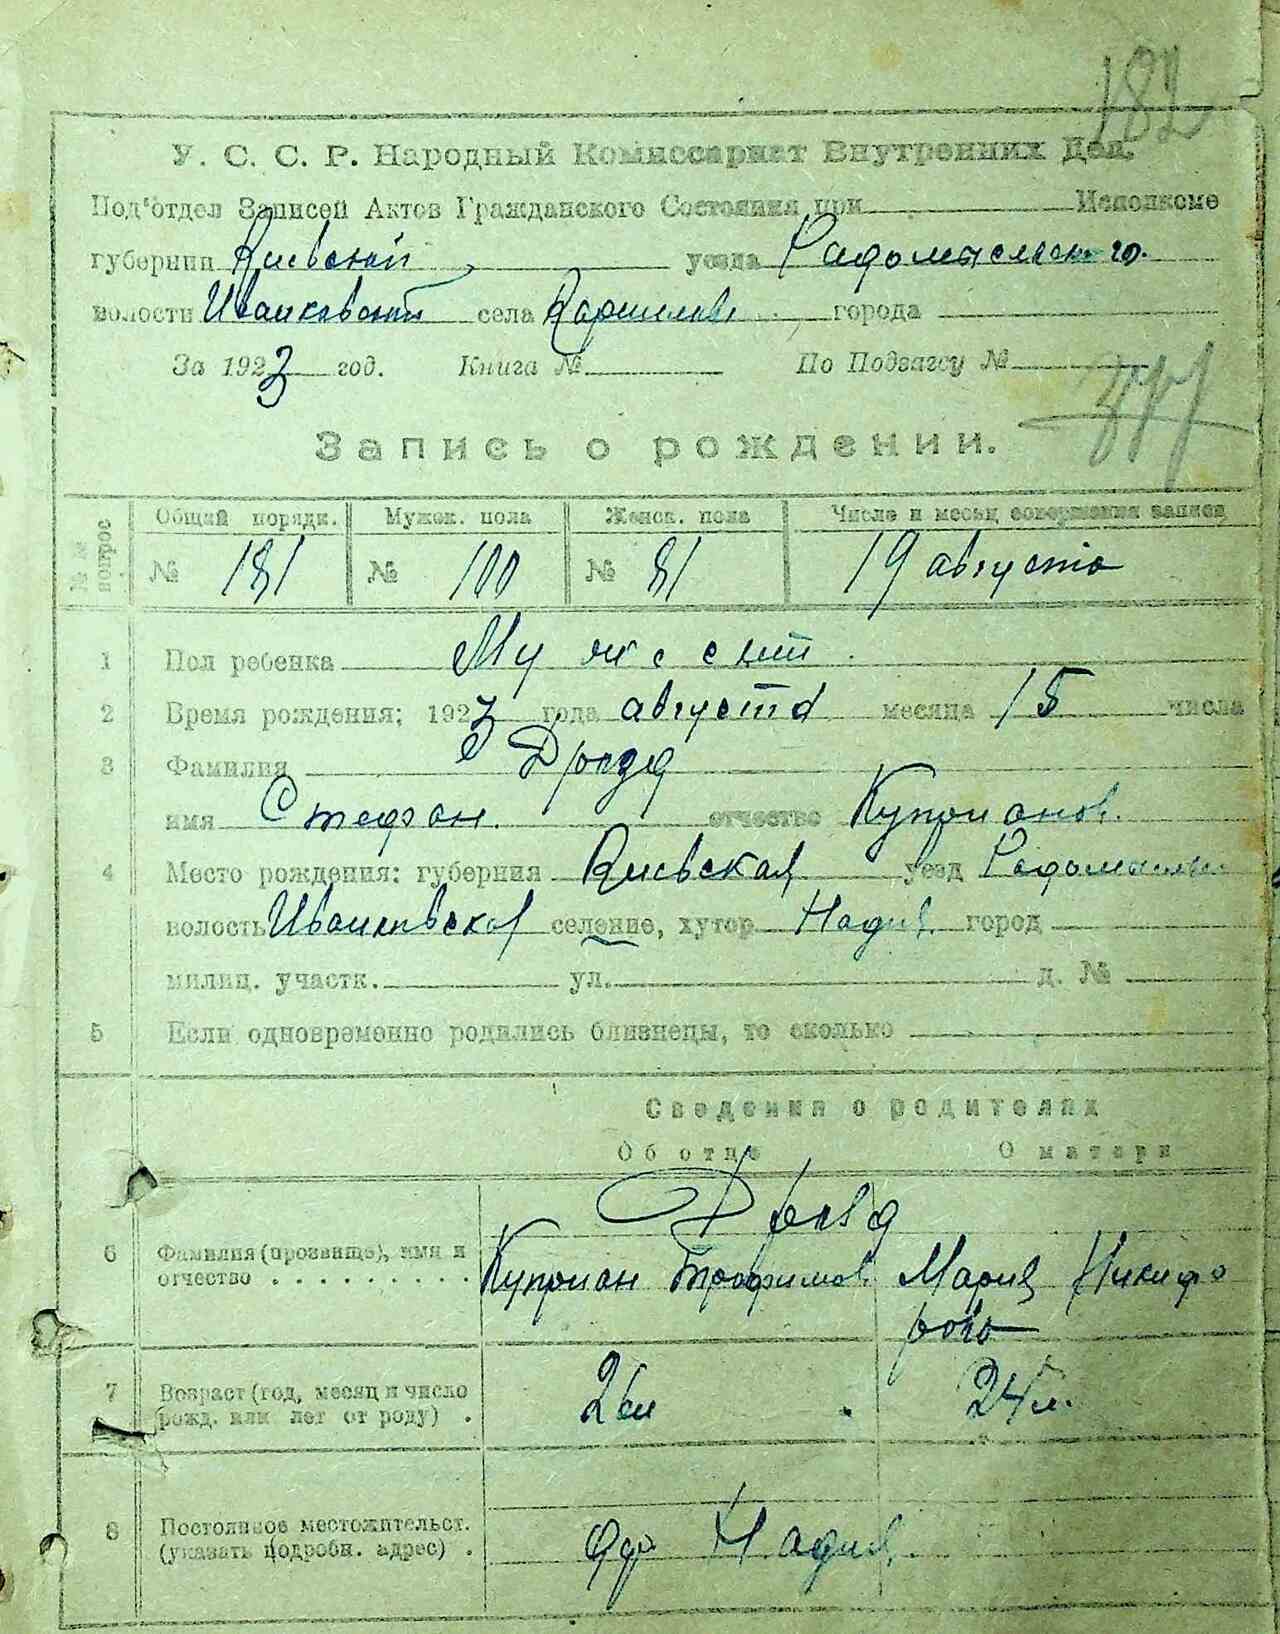 182
У. С. С. Р. Народный Комиссариат Внутренних Дел.
Под'отдел Записей Актов Гражданского Состояния при Исполкоме
губернии Киевской уезда Радомысльского.
волости Иванковской села города
За 1923 год. Книга № По Подзагсу №
Запись о рождении.
№№ вопрос Общий порядк. Мужск. пола Женск. пола Число и месяц совершения записи
№ 181 № 100 № 81 19 августа
1 Пол ребенка Мужской
2 Время рождения: 1923 года августа месяца 15 числа
3 Фамилия Дрозд
имя Стефан отчество Куприанов.
4 Место рождения: губерния Киевская уезд Радомысльс
волость Иванковская селение, хутор город
милиц. участк. ул. д. №
5 Если одновременно родились близнецы, то сколько
Сведения о родителях
Об отце О матери
Дрозд
6 Фамилия (прозвище), имя и отчество . . . . . . . . . . Куприан Трофимов. Мария Никифо
рова
7 Возраст (год, месяц и число рожд. или лет от роду) . 26 л 24 л.
8 Постоянное местожительст. (указать подробн. адрес) .